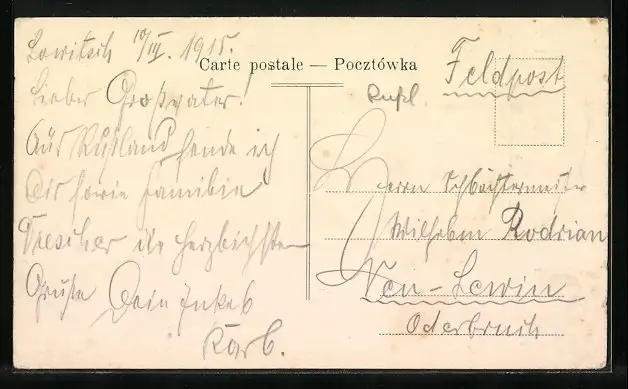 Lowitsch 10/III. 1915.
Carte postale — Pocztówka
Feldpost
Rußl.
Lieber Großvater!
Aus Rußland sende ich
Dir sowie Familie
Drescher die herzlichsten
Grüße Dein Enkel
Karl.
Herrn Schachtmeister
Wilhelm Rodrian
Neu-Lewin
Oderbruch